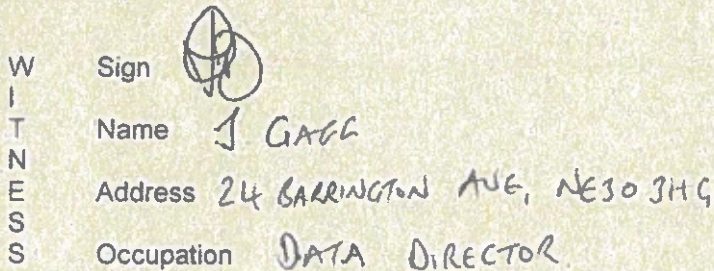 WITNESS
Sign
Name J GAGG
Address 24 BARRINGTON AVE, NE30 3HG
Occupation DATA DIRECTOR